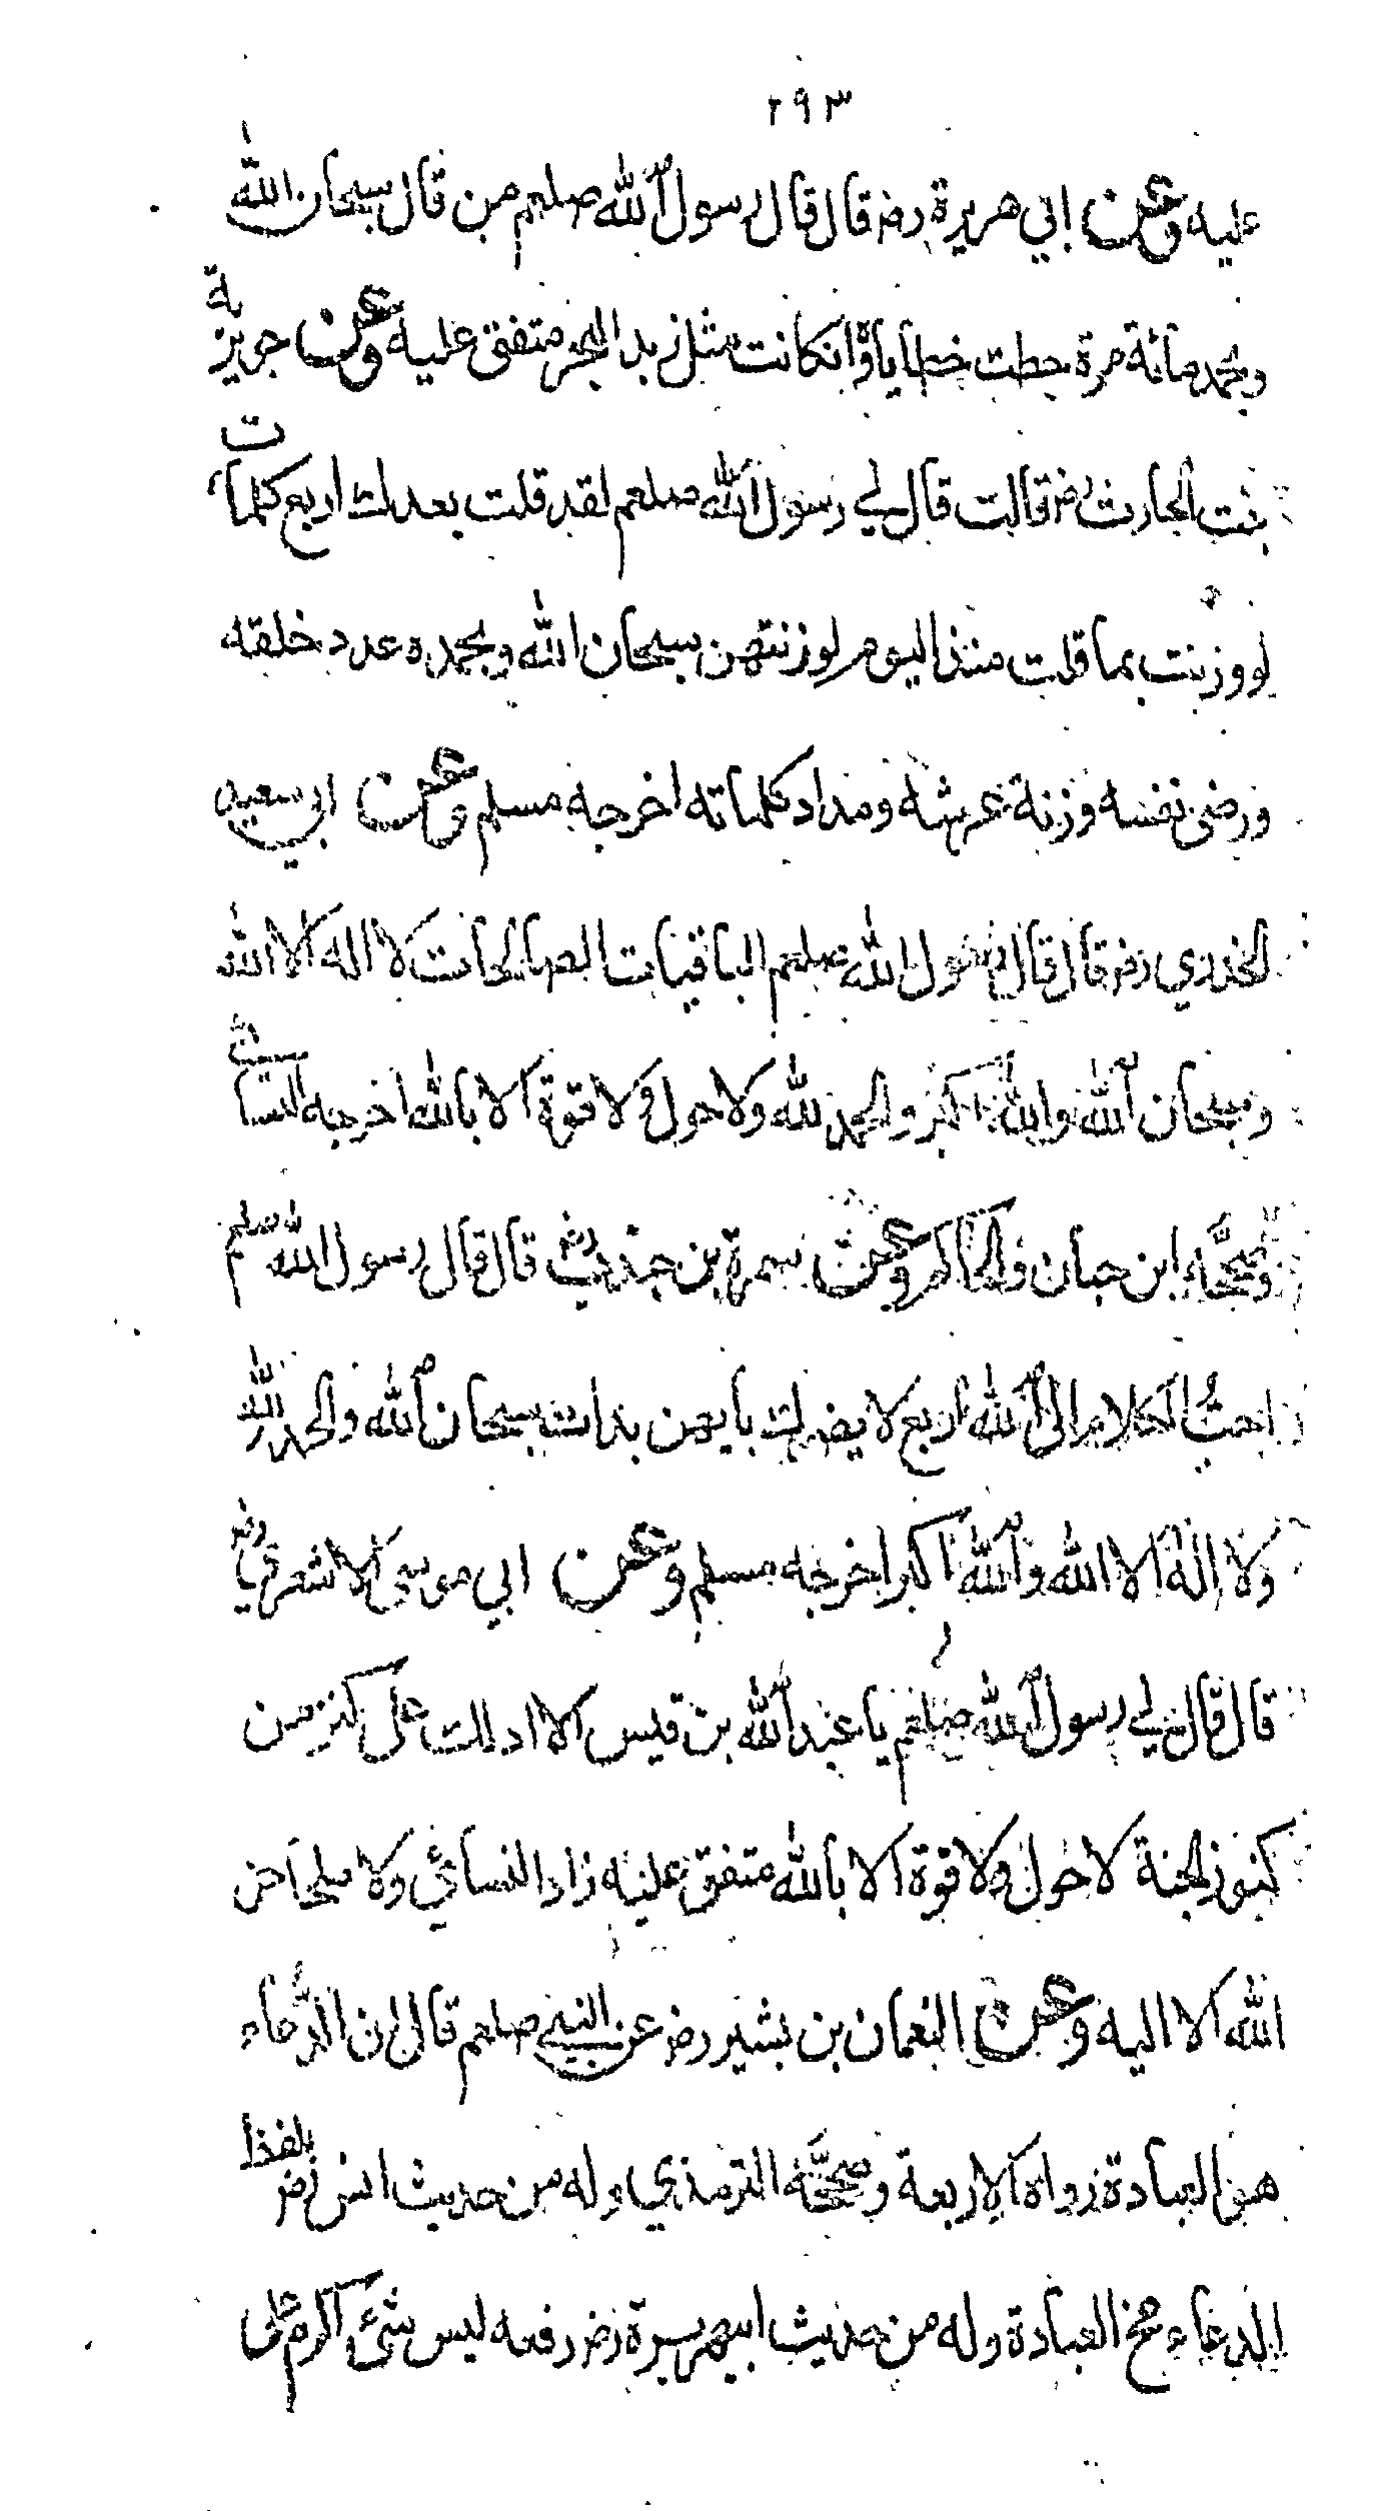 ٢٩٣
عليه وعن ابي هريرة رضر قال قال رسول الله صلعم من قال سبحان الله
وبحمده مائة مرة حطت خطاياه وانكانت مثل زبد البحر متفق عليه وعن جويرية
بنت الحارث رضر قالت قال لي رسول الله صلعم لقد قلت بعدك اربع كلمات
لو وزنت بما قلت منذ اليوم لوزنتهن سبحان الله وبحمده عدد خلقه
ورضى نفسه وزنة عرشه ومداد كلماته اخرجه مسلم وعن ابي سعيد
الخدري رضر قال قال رسول الله صلعم الباقيات الصالحات لا اله الا الله
وسبحان الله والله اكبر والحمد لله ولا حول ولا قوة الا بالله اخرجه النسائي
وصححه ابن حبان والحاكم وعن سمرة بن جندب قال قال رسول الله صلعم
احب الكلام الى الله اربع لا يضرك بايهن بدات سبحان الله والحمد لله
ولا اله الا الله والله اكبر اخرجه مسلم وعن ابي موسى الاشعري رضر
قال قال لي رسول الله صلعم يا عبد الله بن قيس الا ادلك على كنز من
كنوز الجنة لا حول ولا قوة الا بالله متفق عليه زاد النسائي ولا ملجا من
الله الا اليه وعن النعمان بن بشير رضر عن النبي صلعم قال ان الدعاء
هو العبادة رواه الاربعة وصححه الترمذي وله من حديث انس رضر بلفظ
الدعاء مخ العبادة وله من حديث ابيهريرة رضر رفعه ليس شئ اكرم على